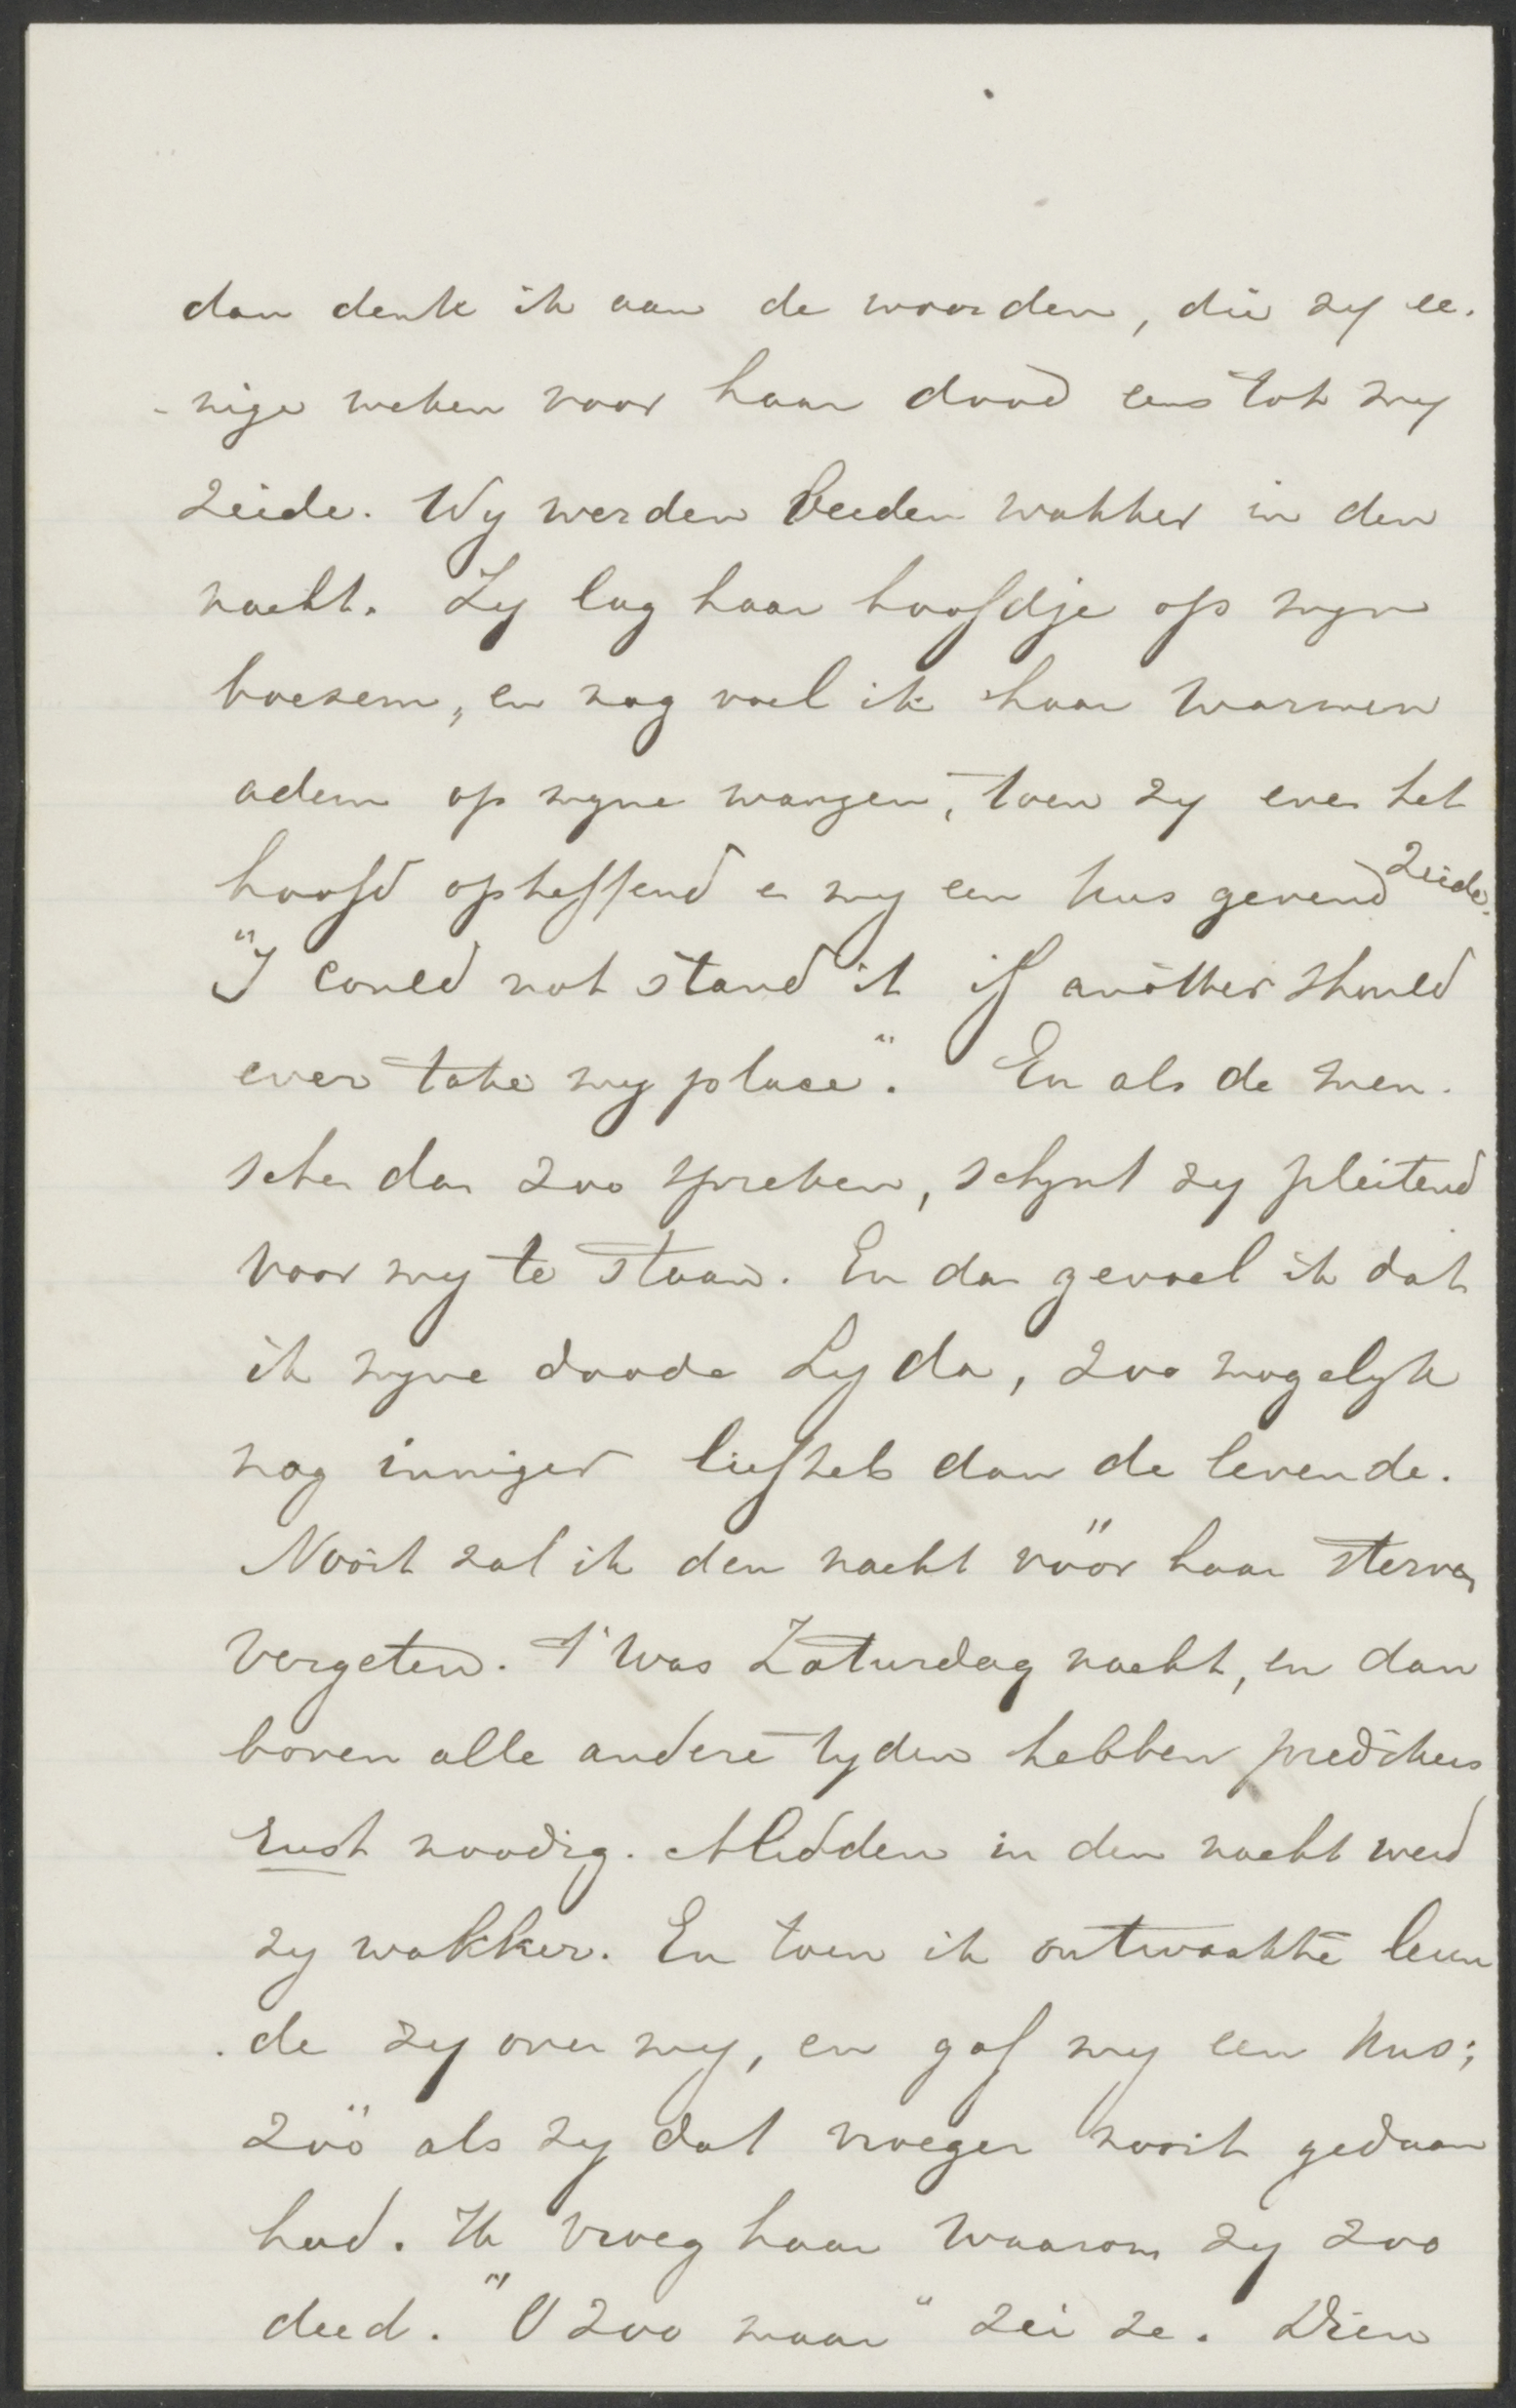 dan denk ik aan de woorden, die zy ee-
-nige weken voor haar dood eens tot my
zeide. Wy werden beiden wakker in den
nacht. Zy lag haar hoofdje op myn
boezem, en nog voel ik haar warmen
adem op myne wangen, toen zy even het
hoofd opheffend en my een kus gevend zeide.
"I could not stand it if another should
ever take my place". En als de men-
schen dan zoo spreken, schynt zy pleitend
voor my te staan. En dan gevoel ik dat
ik myne doode Lyda, zoo mogelyk
nog inniger liefheb dan de levende.
Nooit zal ik den nacht vóór haar sterven
vergeten. 't Was Zaturdag nacht, en dan
boven alle andere tyden hebben predikers
rust noodig. Midden in den nacht werd
zy wakker. En toen ik ontwaakte leun
-de zy over my, en gaf my een kus;
zóó als zy dat vroeger nooit gedaan
had. Ik vroeg haar waarom zy zoo
deed. "O zoo maar" zei ze. Dien